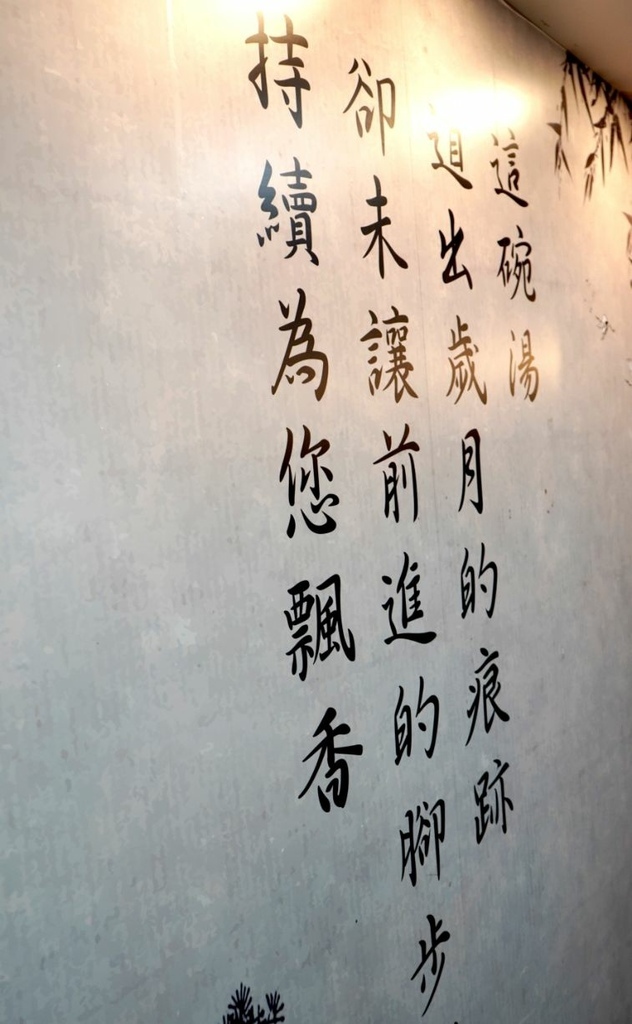 這碗湯
道出歲月的痕跡
卻未讓前進的腳步
持續為您飄香